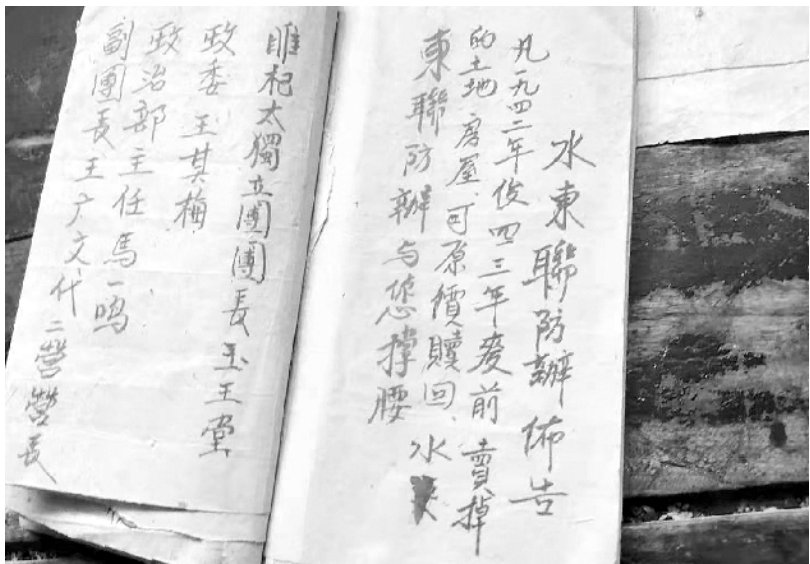 水東聯防辦佈告
凡一九四二年後四三年麥前賣掉
的土地、房屋、可原價贖回、水
東聯防辦与您撑腰
睢杞太獨立團團長玉王堂
政委王其梅
政治部主任馬一鸣
副團長王广文代二營營長